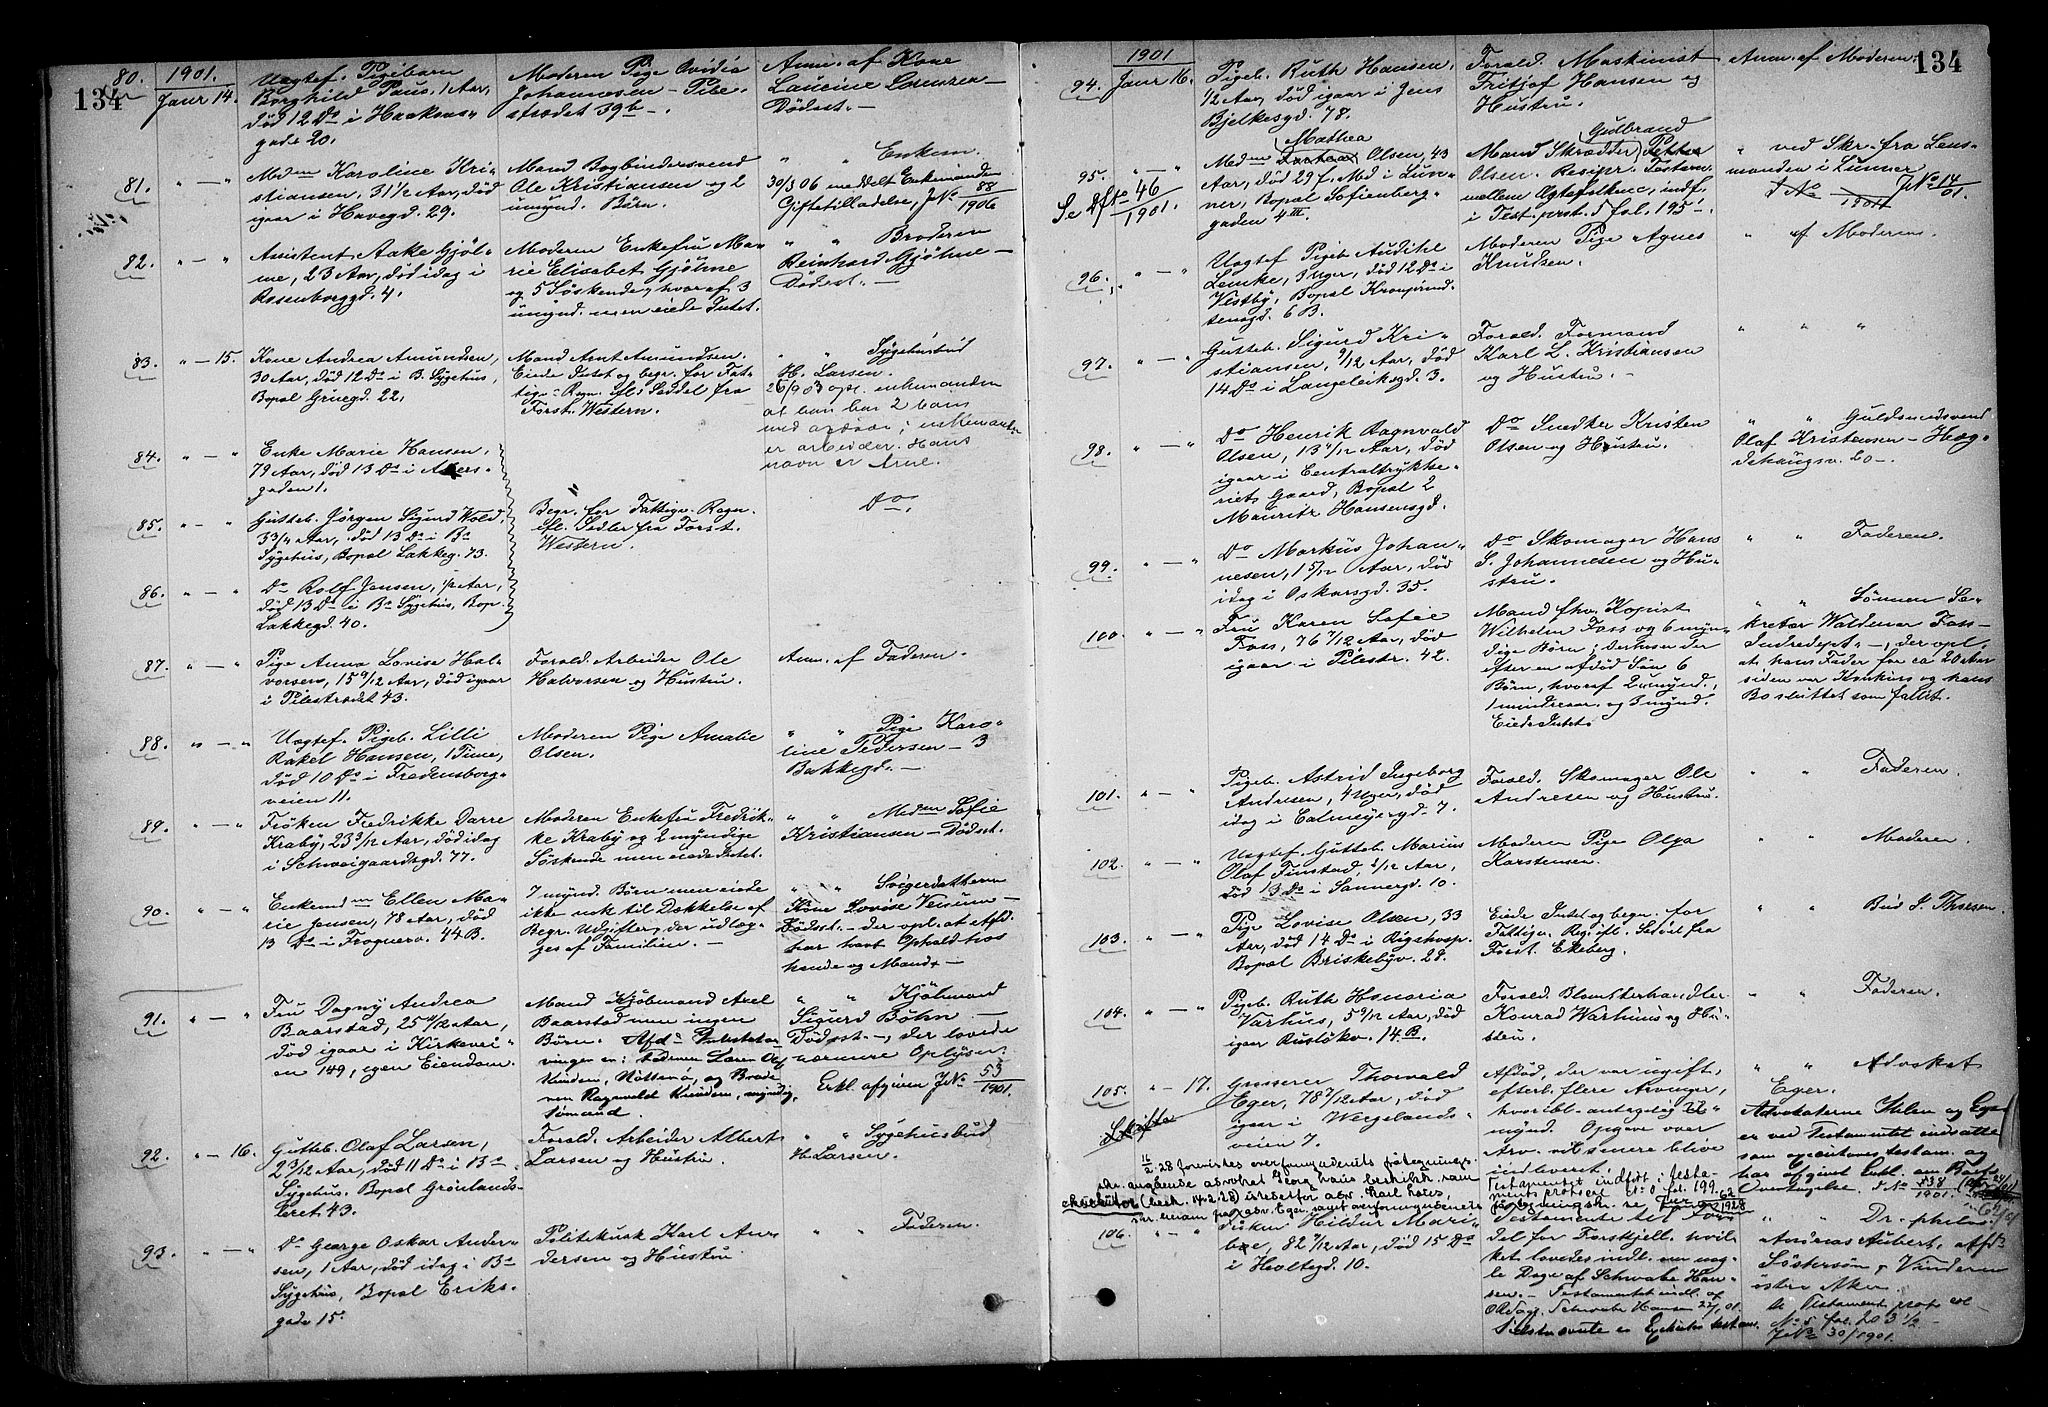 134
80.
1901.
Janr 14.
Uægtef. Pigebarn
Borghild Paus, 1 Aar,
død 12 Do i Haakons-
gade 20.
Moderen Pige Ovidia
Johannesen – Pile-
strædet 39b –.
Anm. af Kone
Laurine
Dødsst. –
81.
" – "
Medm Karoline Kri-
stiansen, 31 1/2 Aar, død
igaar i Havegd. 29.
Mand Bogbindersvend
Ole Kristiansen og 2
umynd. Børn.
" " Enkem.
30/3 06 meddelt Enkemanden
Giftetilladelse, J No 88/1906
82.
" – "
Assistent Aake Gjøh-
me, 23 Aar, død idag i
Rosenborggd. 4.
Moderen Enkefru Ma-
rie Elisabet Gjøhme
og 5 Søskende, hvoraf 3
umynd. men eiede Intet.
" " Broderen
Reinhard Gjøhme –
Dødsst. –
83.
" – 15.
Kone Andrea Amundsen,
30 Aar, død 12 Do i B. Sygehus,
Bopæl Gruegd. 22.
Mand Arnt Amundsen.
Eiede Intet og begr. for Fat-
tigv. Regn. ifl. Seddel fra
Forst. Western.
" " Sygehusbud
H. Larsen.
26/9 03 opl. enkemanden
at han har 2 barn
med afdøde; enkemanden
er arbeider. Hans
navn er Arne.
84.
" – "
Enke Marie Hansen,
79 Aar, død 13 Do i Akers-
gaden 1.
85.
" – "
Gutteb. Jørgen Sigurd Wold,
3 3/12 Aar, død 13 Do i Bo
Sygehus, Bopæl Lakkeg. 73.
"
Begr. for Fattigv. Regn.
ifl. Sedler fra Forst.
Western.
Do.
86.
" – "
Do Rolf Jensen, 1/2 Aar,
død 13 Do i Bo Sygehus, Bop.
Lakkegd. 40.
87.
" – "
Pige Anna Lovise Hal-
vorsen, 15 9/12 Aar, død igaar
i Pilestrædet 43.
Foræld. Arbeider Ole
Halvorsen og Hustru.
Anm. af Faderen.
88.
" – "
Uægtef. Pigeb. Lilli
Rakel Hansen, 1 Time,
død 10 Do i Fredensborg-
veien 11.
Moderen Pige Amalie
Olsen.
" " Pige Karo-
line Pedersen – 3
Bakkegd. –
89.
" – "
Frøken Fredrikke Darre
Kraby, 23 3/12 Aar, død idag
i Schweigaardsgd. 77.
Moderen Enkefru Fredrik-
ke Kraby og 2 myndige
Søskende men eiede Intet.
" " Medm Sofie
Kristiansen – Dødsst. –
90.
" – "
Enkemdm Ellen Ma-
rie Jensen, 78 Aar, død
13 Do i Frognerv. 44 B.
7 mynd. Børn men eiede
ikke nok til Dækkelse af
Begr. Udgifter, der udlæg-
ges af Familien. –
" " Svigerdatteren
Kone Lovise –
Dødsst. – der opl. at Afd.
har havt Ophold hos
hende og Mand. –
91.
" – "
Fru Dagny Andrea
Baarstad, 25 11/12 Aar,
død igaar i Kirkevei-
en 149, egen Eiendom.
Mand Kjøbmand Axel
Baarstad men ingen
Børn.
" " Kjøbmand
Sigurd Bøhn –
Dødsst. –, der lovede
nærmere Oplysn.
Erkl. afgiven J No 53/1901.
92.
" – 16.
Gutteb. Olaf Larsen,
2 3/12 Aar, død 11 Do i Bo
Sygehus. Bopæl Grønlands-
leret 43.
Foræld. Arbeider Albert
Larsen og Hustru.
" " Sygehusbud
H. Larsen.
93.
" – "
Do George Oskar Ander-
sen, 1 Aar, død idag i Bo
Sygehus, Bopæl Eriks-
gade 15.
Politikusk Karl An-
dersen og Hustru
" " Faderen.
134
1901
94.
Janr 16.
Pigeb. Ruth Hansen,
1/2 Aar, død igaar i Jens
Bjelkesgd. 78.
Foræld. Maskinist
Fritjof Hansen og
Hustru.
Anm. af Moderen.
95.
" – "
Se Afd No 46/1901.
Medm Mathea Olsen, 43
Aar, død 29 f. Md i Lun-
ner, Bopæl Sofienberg-
gaden 4 III.
Mand Skrædder Gulbrand
Olsen. Resipr. Testam.
mellem Ægtefolkene, indf.
i Test. prot. 5 fol. 195.
" ved Skr. fra Lens-
manden i Lunner
J No 14/01.
96.
" – "
Uægtef. Pigeb.
Lemke, 3 Uger, død 12 Do i
Vestby, Bopæl Kronprind-
sensgd. 6 B.
Moderen Pige Agnes
Knudsen.
" af Moderen.
97.
" – "
Gutteb. Sigurd Kri-
stiansen, 9/12 Aar, død
14 Do i Langeleiksgd. 3.
Foræld. Formand
Karl L. Kristiansen
og Hustru. –
" " "
98.
" – "
Do Henrik Ragnvald
Olsen, 13 11/12 Aar, død
igaar i Centraltrykke-
riets Gaard, Bopæl 2
Mauritz Hansensgd.
Do Snedker Kristen
Olsen og Hustru.
" " Guldsmedsvend
Olaf Kristensen – Hæg-
dehaugsv. 20 –.
99.
" – "
Do Markus Johan-
nesen, 1 5/12 Aar, død
idag i Oskarsgd. 35.
Do Skomager Hans
S. Johannesen og Hu-
stru.
" " Faderen.
100.
" – "
Fru Karen Sofie
Foss, 76 7/12 Aar, død
igaar i Pilestr. 42.
Mand fhv. Kopist
Wilhelm Foss og 6 myn-
dige Børn; desuden der
efter en afdød Søn 6
Børn, hvoraf 2 umynd.,
1 mindreaar. og 3 mynd.
Eiede Intet.
" " Sønnen Se-
kretær Waldemar Foss –
Indredept. –, der opl.
at hans Fader for ca 20 Aar
siden var Konkurs og hans
Bo sluttet som fallit.
101.
" – "
Pigeb. Astrid Ingeborg
Andresen, 4 Uger, død
idag i Calmeyersgd. 7.
Foræld. Skomager Ole
Andresen og Hustru.
" " Faderen.
102.
" – "
Uægtef. Gutteb. Marius
Olaf Finstad, 2/12 Aar,
død 13 Do i Sannergd. 10.
Moderen Pige Olga
Karstensen.
" " Moderen.
103.
" – "
Pige Lovise Olsen, 33
Aar, død 14 Do i Rigshosp.
Bopæl Briskebyv. 28.
Eiede Intet og begr. for
Fattigv. Reg. ifl. Seddel fra
Forst. Ekeberg.
" " Bud S. Thoresen.
104.
" – "
Pigeb. Ruth Honoria
Varhus, 5 9/12 Aar, død
igaar Rusløkv. 14 B.
Foræld. Blomsterhandler
Konrad Warhuus og Hu-
stru.
" " Faderen.
105.
" – 17.
Skifte
Grosserer Thorvald
Eger, 78 7/12 Aar, død
igaar i Wergelands-
veien 7.
Afdød, der var ugift,
efterl. flere Arvinger,
hvoribl. antagelig
mynd. Opgave over
Arv. vil senere blive
indleveret.
Testamentet indført i testa-
mentsprotocol No 0 fol. 199.
" " Advokat
Eger.
Advokaterne Helen og Eger
er ved Testamentet indsatte
som executores testam. og
har afgivet Erkl. om Boets
Overtagelse. J No 738/1901.
106.
" – "
Frøken Hildur Mari-
boe, 82 7/12 Aar, død 15 Do
i Holtegd. 10.
Testamente til For-
del for Forskjell. hvil-
ket lovedes indl. om nog-
le Dage af Schwabe Han-
sen. – Testamentet indl. af
O.R.Sag. Schwabe Hansen 22/1 01.
" " Dr. philos.
Andreas Aubert, Afd.s
Søstersøn, Vinderen
østre Aker
Se Testament prot.
No 5 fol. 203 1/2 –
J No 30/1901.